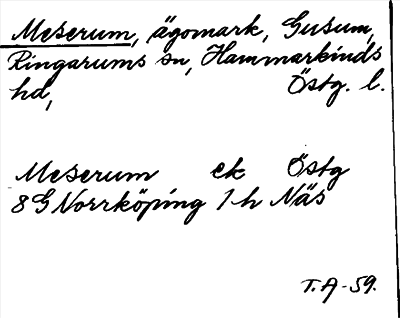 Meserum, ägomark, Gusum,
Ringarums sn, Hammarkinds
hd, Östg. l.
Meserum ek Östg
8G Norrköping 1h Näs
T.A-59.